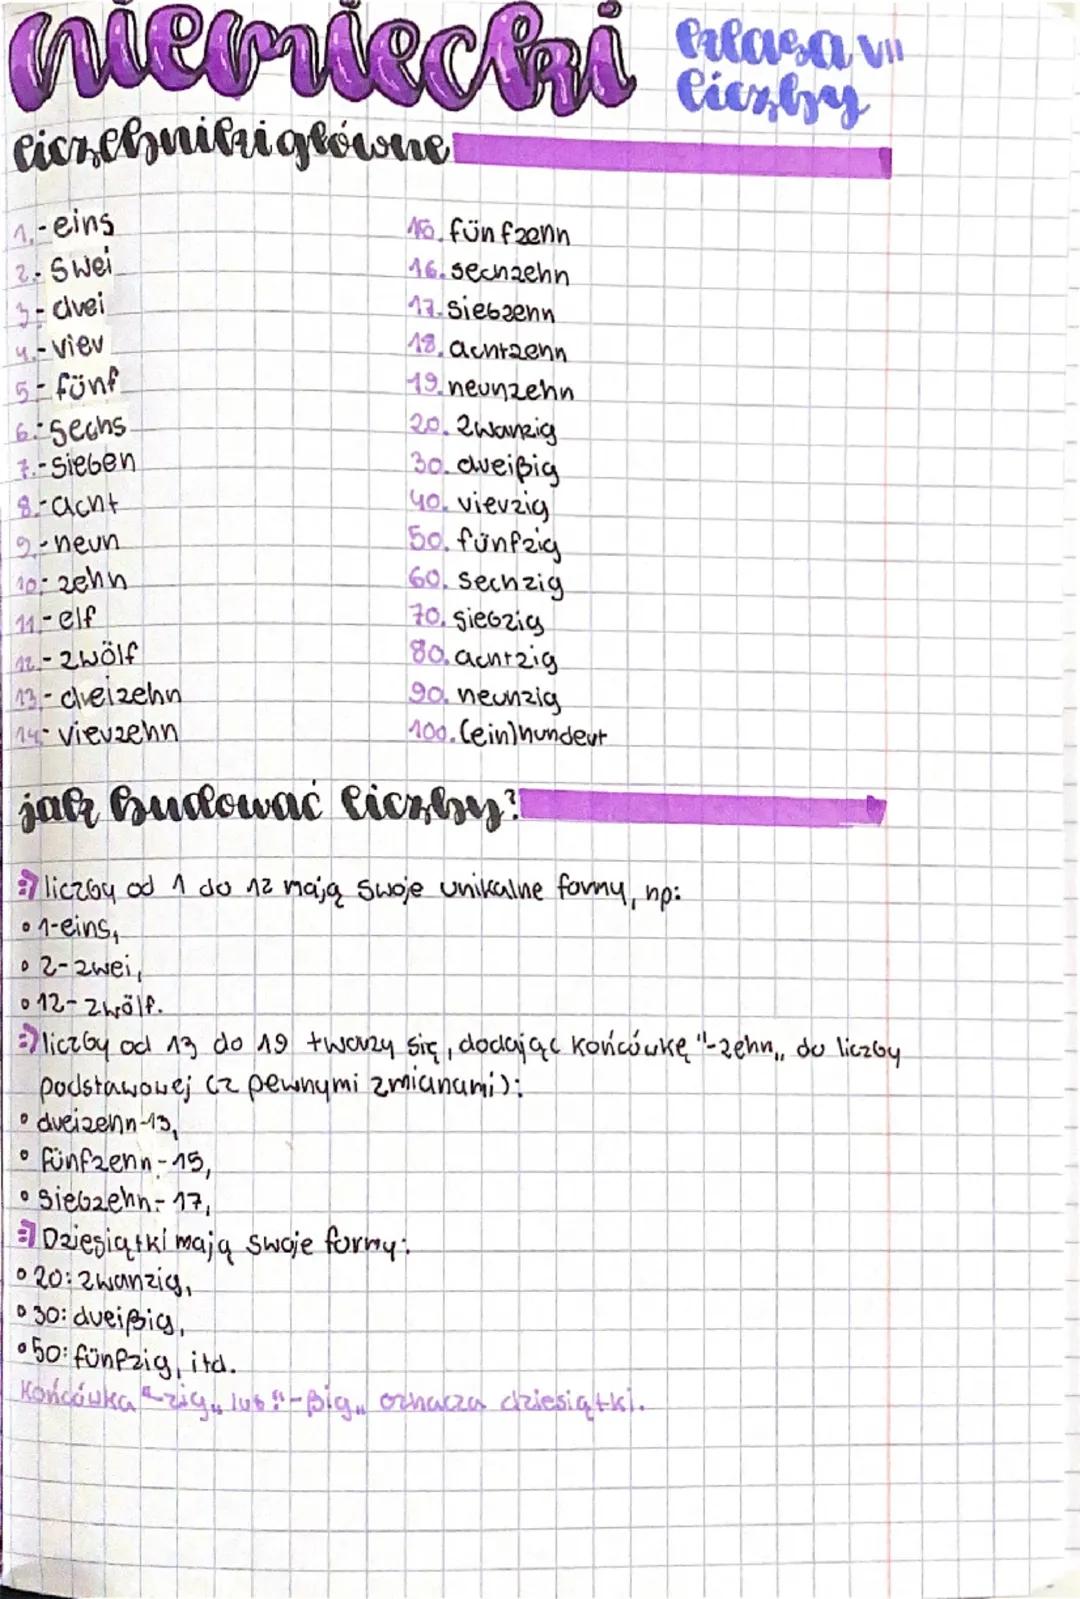 niemiecki
klasa VII
liczby
liczebniki główne
1.-eins
2.- swei
3-drei
4.-vier
5-fünf
6.-sechs
7.-sieben
8.-acht
9.-neun
10-zehn
11-elf
12.-zwölf
13-dreizehn
14-vierzehn
15. fünfzehn
16. sechzehn
17. siebzehn
18. achtzehn
19. neunzehn
20. zwanzig
30. dreißig
40. vierzig
50. fünfzig
60. sechzig
70. siebzig
80. achtzig
90. neunzig
100. (ein)hundert
jak budować liczby?
=) liczby od 1 do 12 mają swoje unikalne formy, np:
• 1-eins,
• 2-zwei,
• 12-zwölf.
=) liczby od 13 do 19 tworzy się, dodając końcówkę "-zehn„ do liczby
podstawowej (z pewnymi zmianami):
• dreizehn-13,
• fünfzehn-15,
• siebzehn-17,
=) Dziesiątki mają swoje formy:
• 20: zwanzig,
• 30: dreißig,
• 50: fünfzig, itd.
Końcówka "-zig„ lub "-ßig„ oznacza dziesiątki.